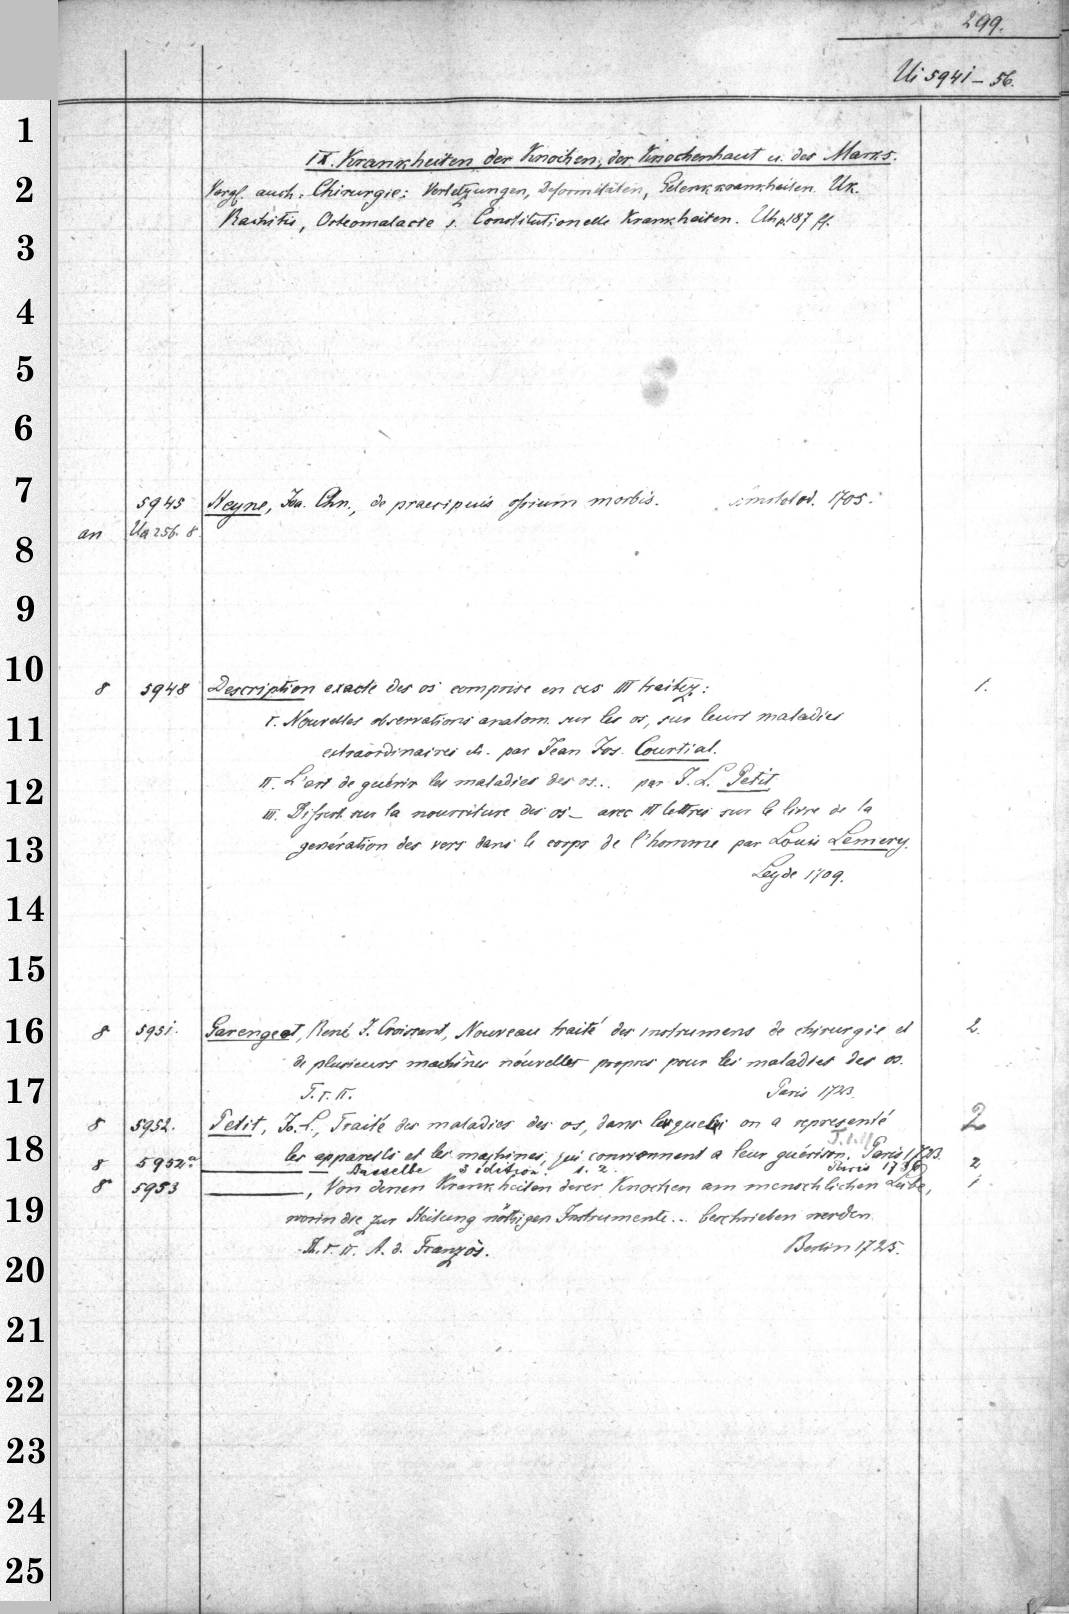 299.
Ui 5941 – 56.
1
IX. Krankheiten der Knochen, der Knochenhaut u. des Marks.
2 Vergl. auch: Chirurgie: Verletzungen, Deformitäten, Gelenkkrankheiten. Uk.
Rachitis, Osteomalacie s. Constitutionelle Krankheiten. Uh p. 187 ff.
3
4
5
6
7 5945 Heyne, Joa. Chn., de praecipuis ossium morbis. Amstelod. 1705.
an Ua 256. 8
8
9
10
8 5948 Description exacte des os comprise en ces III traitez: 1.
11 I. Nouvelles observations anatom. sur les os, sur leurs maladies
extraordinaires etc. par Jean Jos. Courtial.
12 II. L'art de guérir les maladies des os... par J. L. Petit
III. Dissert. sur la nourriture des os – avec III lettres sur le livre de la
13 génération des vers dans le corps de l'homme par Louis Lemery.
Leyde 1709.
14
15
16 8 5951. Garengeot, René J. Croissant, Nouveau traité des instrumens de chirurgie et 2.
de plusieurs machines nouvelles propres pour les maladies des os.
17 T. I. II. Paris 1723.
8 5952. Petit, J. L., Traité des maladies des os, dans lesquels on a representé 2
18 les appareils et les machines, qui conviennent a leur guérison. Paris 1723.
8 5952a — Dasselbe 3 édition. 1. 2. Paris 1736 2
8 5953 —, Von denen Krankheiten derer Knochen am menschlichen Leibe, 1
19 worin die zur Heilung nöthigen Instrumente... beschrieben werden.
Th. I. II. A. d. Französ. Berlin 1725.
20
21
22
23
24
25